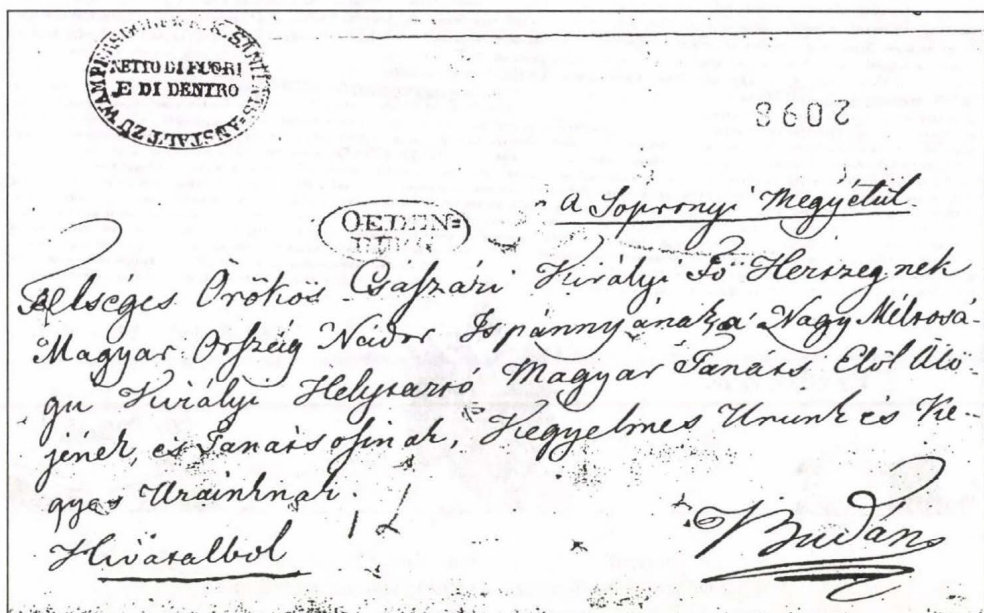 K. K. SANITÄTS-ANSTALT ZU
NETTO DI FUORI
E DI DENTRO
2098
A Sopronyi Megyétül
OEDEN=
BURG
Felséges Örökös Csaszári Királyi Fő Herszegnek
Magyar Ország Nádor Ispánnyának, a' Nagy Méltosá-
gu Királyi Helytartó Magyar Tanáts Elöl Ülö-
jének, és Tanátsosinak, Kegyelmes Urunk és Ke-
gyes Urainknak.
Hivatalbol
Budán